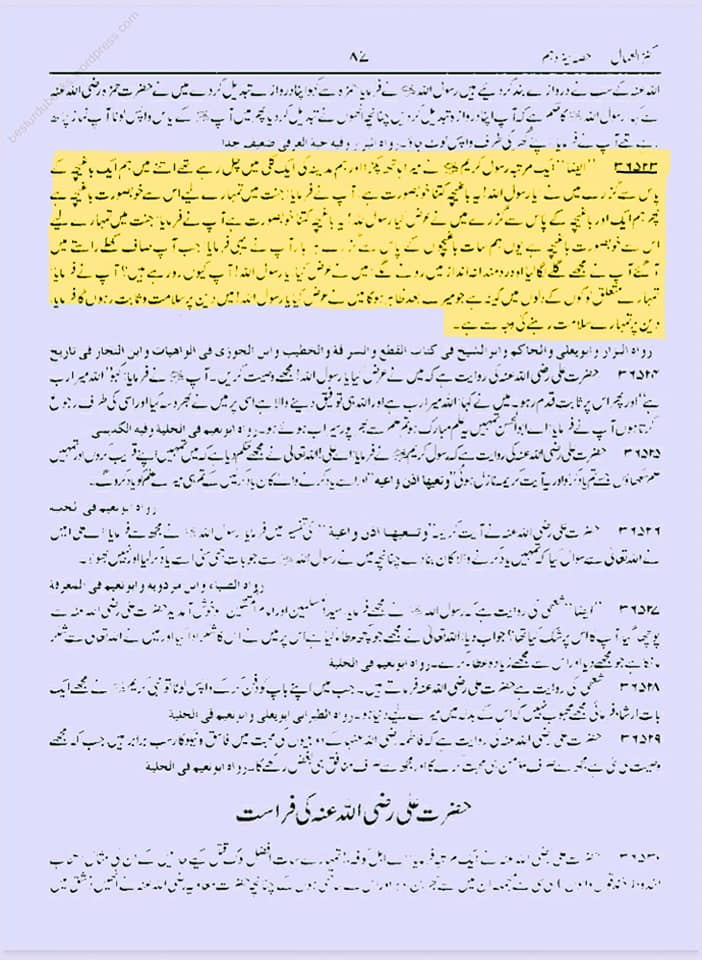 besturdubooks.wordpress.com
کنز العمال حصہ سیزدہم ۸۷
اللہ عنہ کے سب نے دروازے بند کردیئے ہیں رسول اللہ ﷺ نے فرمایا حمزہ سے کہو اپنا دروازے تبدیل کر دے میں نے حضرت حمزہ رضی اللہ عنہ
سے کہا رسول اللہ ﷺ کا حکم ہے کہ آپ اپنا دروازہ تبدیل کردیں چنانچہ انھوں نے تبدیل کردیا پھر میں آپ ﷺ کے پاس واپس لوٹا آپ نماز پڑھ
رہے تھے آپ نے فرمایا اپنے گھر کی طرف واپس لوٹ جاؤ۔ رواہ البزار وفیہ حبة العرفی ضعیف جدا
۳۶۵۲۳ ”ایضا“ ایک مرتبہ رسول کریم ﷺ نے میرا ہاتھ پکڑا اور ہم مدینہ کی ایک گلی میں چل رہے تھے اتنے میں ہم ایک باغیچہ کے
پاس سے گزرے میں نے یا رسول اللہ! یہ باغیچہ کتنا خوبصورت ہے۔ آپ نے فرمایا: جنت میں تمہارے لیے اس سے خوبصورت باغیچہ ہے
پھر ہم ایک اور باغیچہ کے پاس سے گزرے میں نے عرض کیا رسول اللہ! یہ باغیچہ کتنا خوبصورت ہے آپ نے فرمایا: جنت میں تمہارے لیے
اس سے خوبصورت باغیچہ ہے یوں ہم سات باغیچوں کے پاس سے گزرے ہر بار آپ نے یہی فرمایا: جب آپ صاف کھلے راستے میں
آگئے آپ نے مجھے گلے لگالیا اور درمندانہ انداز میں رونے لگے میں نے عرض کیا یا رسول اللہ! آپ کیوں رورہے ہیں؟ آپ نے فرمایا:
تمہارے متعلق لوگوں کے دلوں میں کینہ ہے جو میرے بعد ظاہر ہوگا میں نے عرض کیا یا رسول اللہ! میں دین پر سلامت و ثابت رہوں گا فرمایا:
دین پر تمہارے سلامت رہنے کی وجہ سے ہے۔
رواہ البزار وابویعلی والحاکم وابو الشیخ فی کتاب القطع والسرقة والخطیب وابن الجوزی فی الواهیات وابن النجار فی تاریخ
۳۶۵۲۴ حضرت علی رضی اللہ عنہ کی روایت ہے کہ میں نے عرض کیا یا رسول اللہ! مجھے وصیت کریں۔ آپ ﷺ نے فرمایا: کہو ”اللہ میرا رب
ہے“ اور پھر اس پر ثابت قدم رہو۔ میں نے کہا: اللہ میرا رب ہے اور اللہ ہی توفیق دینے والا ہے اسی پر میں نے بھروسہ کیا اور اسی کی طرف رجوع
کرتا ہوں آپ نے فرمایا: اے ابوالحسن تمہیں یہ علم مبارک ہو تم علم سے بھرپور سیراب ہوئے ہو۔ رواہ ابونعیم فی الحلیة وفیہ الکدیمی
۳۶۵۲۵ حضرت علی رضی اللہ عنہ کی روایت ہے کہ رسول کریم ﷺ نے فرمایا: اے علی! اللہ تعالیٰ نے مجھے حکم دیا ہے کہ میں تمہیں اپنے قریب کروں اور تمہیں
علم سکھاؤں جسے تم یاد کرو اور یہ آیت کریمہ نازل ہوئی ”وتعیها اذن واعیة“ اور اسے یاد کرنے والے کان یاد کرتے ہیں گے تم ہی میرے علم کو یاد کرو گے۔
رواہ ابونعیم فی الحلیة
۳۶۵۲۶ حضرت علی رضی اللہ عنہ نے آیت کریمہ ”وتعیها اذن واعیة“ کی تفسیر میں فرمایا: رسول اللہ ﷺ نے مجھ سے فرمایا: اے علی! میں
نے اللہ تعالیٰ سے سوال کیا کہ تمہیں یاد کرنے والا کان بنادے چنانچہ میں نے رسول اللہ ﷺ سے جو بات بھی سنی اسے یاد کرلیا اور نہیں بھولا۔
رواہ الضیاء وابن مردویہ وابونعیم فی المعرفة
۳۶۵۲۷ ”ایضا“ شعمی کی روایت ہے۔ رسول اللہ ﷺ نے مجھے فرمایا: سید المسلمین اور امام المتقین کو خوش آمدید حضرت علی رضی اللہ عنہ سے
پوچھا گیا: آپ کا اس پر شک کیا تھا؟ جواب دیا: اللہ تعالیٰ نے مجھے جو کچھ عطاء کیا ہے اس پر میں نے اس کا شکر ادا کیا اور میں نے اللہ تعالیٰ سے شکر
مانگا ہے جو مجھے دیا اور اس سے مجھے زیادہ عطاء کرے۔ رواہ ابونعیم فی الحلیة
۳۶۵۲۸ شعمی کی روایت ہے حضرت علی رضی اللہ عنہ فرماتے ہیں۔ جب میں اپنے باپ کو دفن کرکے واپس لوٹا تو نبی کریم ﷺ نے مجھے ایک
بات ارشاد فرمائی مجھے محبوب نہیں کہ اس کے بدلہ میں میرے لیے دنیا ہو۔ رواہ الطبرانی ابویعلی وابونعیم فی الحلیة
۳۶۵۲۹ حضرت علی رضی اللہ عنہ کی روایت ہے کہ فاطمہ رضی اللہ عنہا کے دو بیٹوں کی محبت میں فاسق و نیکوکار سب برابر ہیں جب کہ مجھے
وصیت کی گئی ہے مجھ سے صرف مومن ہی محبت کرے گا اور مجھ سے صرف منافق ہی بغض رکھے گا۔ رواہ ابونعیم فی الحلیة
حضرت علی رضی اللہ عنہ کی فراست
۳۶۵۳۰ حضرت علی رضی اللہ عنہ نے ایک مرتبہ فرمایا: اے اہل کوفہ! تمہارے سات افضل لوگ قتل کیے جائیں گے ان کی مثال اصحاب
حضرت معاویہ رضی اللہ عنہ نے انھیں دمشق میں